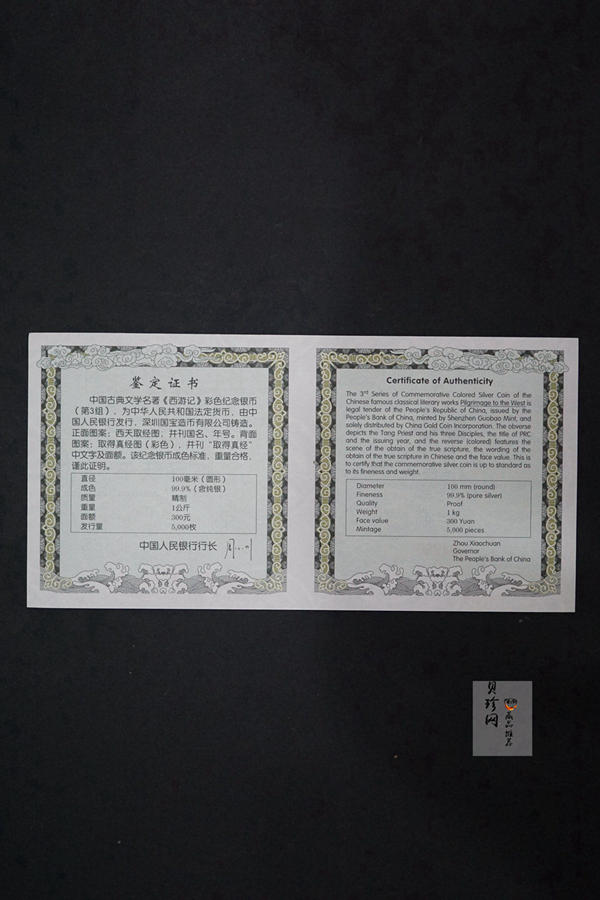 鉴定证书
中国古典文学名著《西游记》彩色纪念银币
（第3组），为中华人民共和国法定货币，由中
国人民银行发行，深圳国宝造币有限公司铸造。
正面图案：西天取经图，并刊国名、年号。背面
图案：取得真经图（彩色），并刊“取得真经”
中文字及面额。该纪念银币成色标准，重量合格，
谨此证明。
直径 100毫米（圆形）
成色 99.9%（含纯银）
质量 精制
重量 1公斤
面额 300元
发行量 5,000枚
中国人民银行行长
Certificate of Authenticity
The 3rd Series of Commemorative Colored Silver Coin of the
Chinese famous classical literary works Pilgrimage to the West is
legal tender of the People's Republic of China, issued by the
People's Bank of China, minted by Shenzhen Guobao Mint, and
solely distributed by China Gold Coin Incorporation. The obverse
depicts the Tang Priest and his three Disciples, the title of PRC
and the issuing year, and the reverse (colored) features the
scene of the obtain of the true scripture, the wording of the
obtain of true scripture in Chinese and the face value. This is
to certify that the commemorative silver coin is up to standard as
to its fineness and weight.
Diameter 100 mm (round)
Fineness 99.9% (pure silver)
Quality Proof
Weight 1 kg
Face value 300 Yuan
Mintage 5,000 pieces
Zhou Xiaochuan
Governor
The People's Bank of China
贝珍网
商品推荐